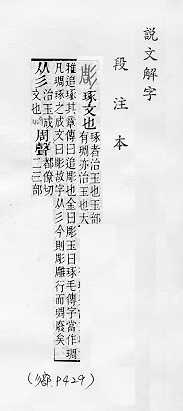 說文解字
段注本
彫 琢文也
琢者治玉也玉部
有琱亦治玉也大
雅追琢其章傳曰追彫也金曰彫玉曰琢毛傳字當作琱
凡琱琢之成文曰彫故字从彡今則彫雕行而琱廢矣
从彡
治玉成
文也
周聲
都僚切
二三部
P429